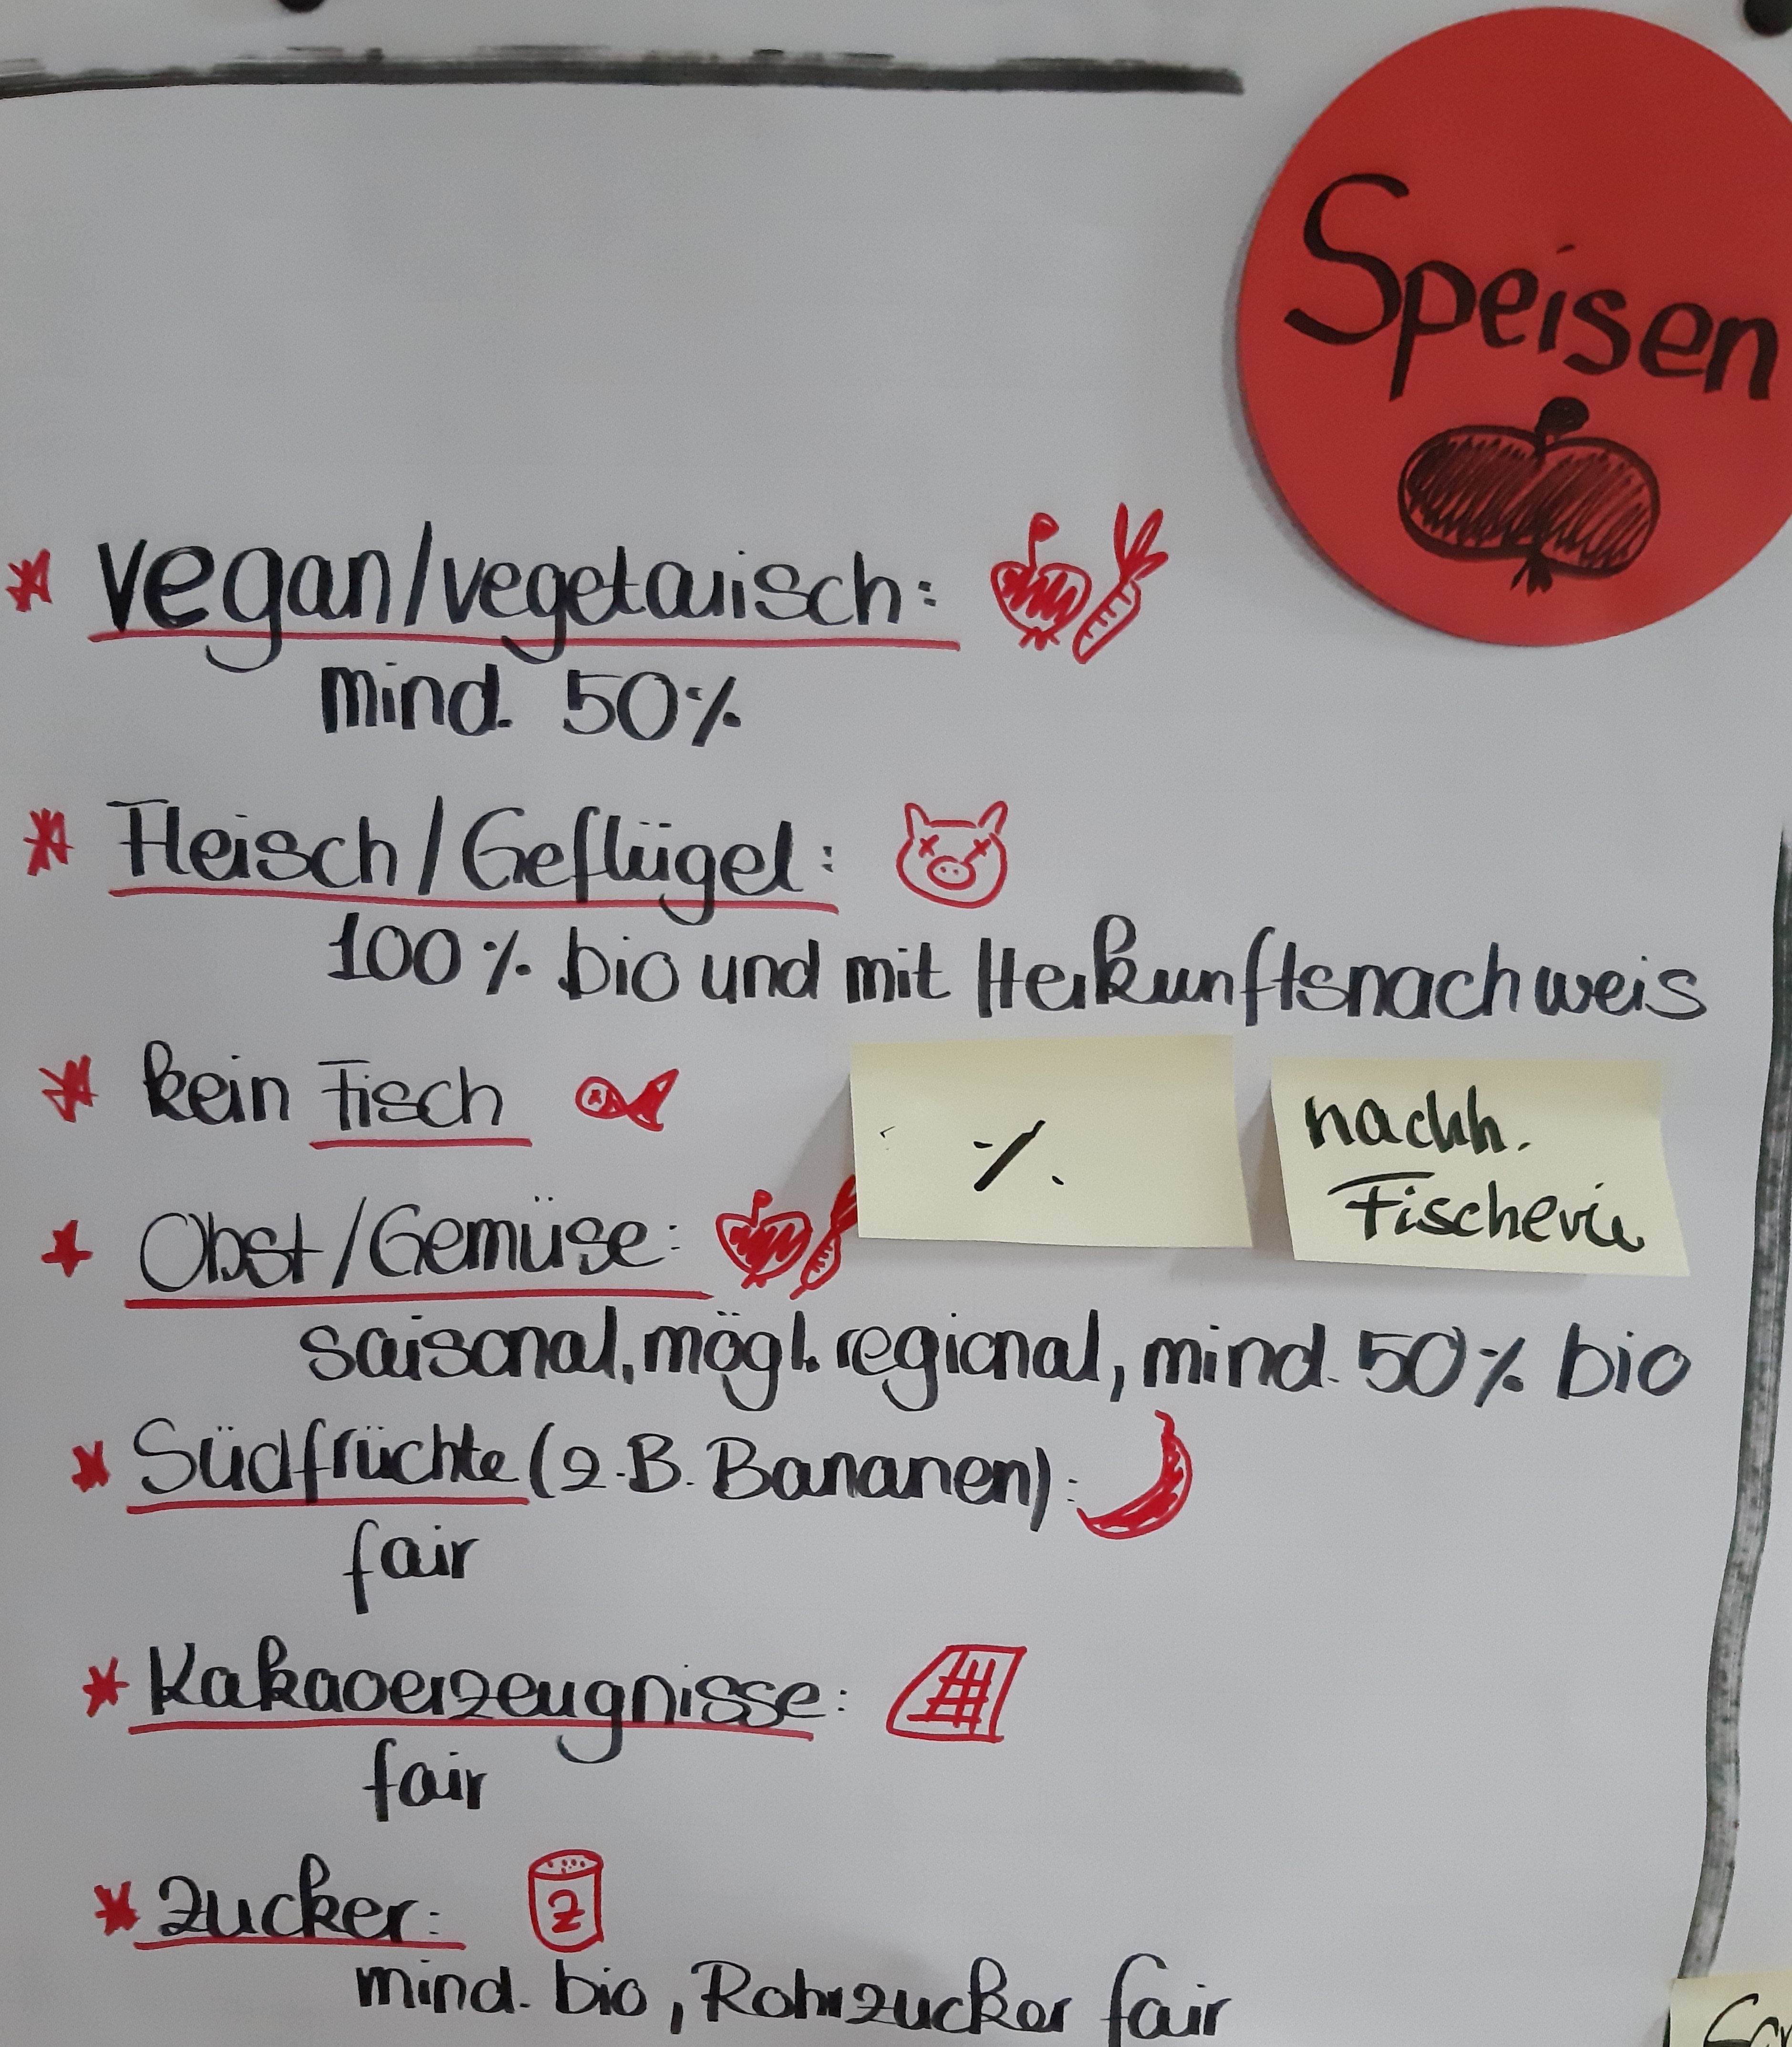 Speisen
vegan/vegetarisch:
mind. 50%
Fleisch/Geflügel:
100% bio und mit Herkunftsnachweis
kein Fisch
%
nachh.
Fischerei
Obst/Gemüse:
saisonal, mögl. regional, mind. 50% bio
Südfrüchte (z.B. Bananen):
fair
Kakaoerzeugnisse:
fair
Zucker:
Z
mind. bio, Rohrzucker fair